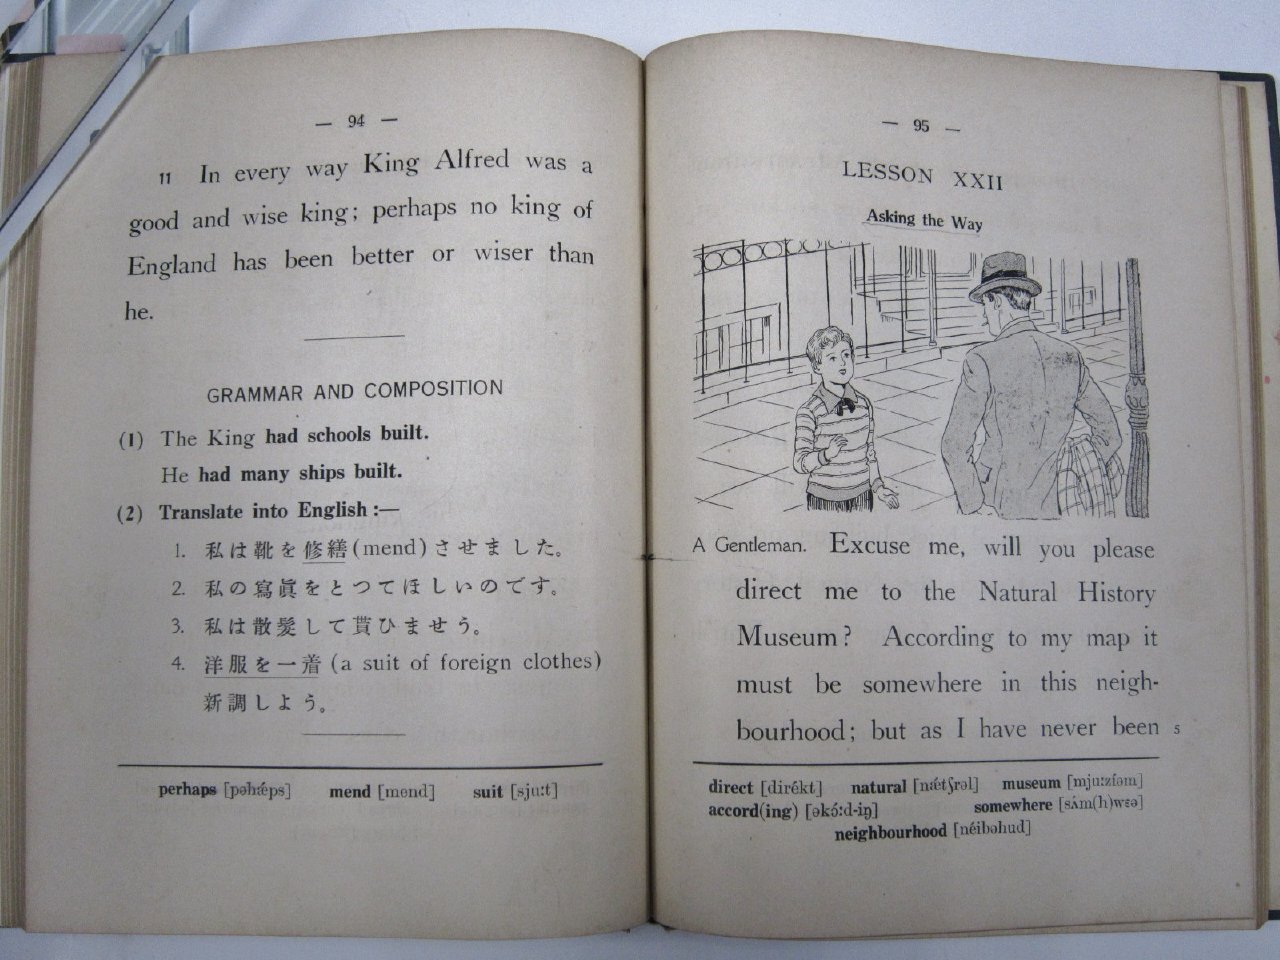 — 94 —
11 In every way King Alfred was a
good and wise king; perhaps no king of
England has been better or wiser than
he.
GRAMMAR AND COMPOSITION
(1) The King had schools built.
He had many ships built.
(2) Translate into English :—
1. 私は靴を修繕(mend)させました。
2. 私の寫眞をとつてほしいのです。
3. 私は散髪して貰ひませう。
4. 洋服を一着(a suit of foreign clothes)
新調しよう。
perhaps [pəhǽps] mend [mend] suit [sju:t]
— 95 —
LESSON XXII
Asking the Way
A Gentleman. Excuse me, will you please
direct me to the Natural History
Museum? According to my map it
must be somewhere in this neigh-
bourhood; but as I have never been 5
direct [dirékt] natural [nǽtʃrəl] museum [mju:zíəm]
accord(ing) [əkɔ́:d-iŋ] somewhere [sʌ́m(h)wɛə]
neighbourhood [néibəhud]